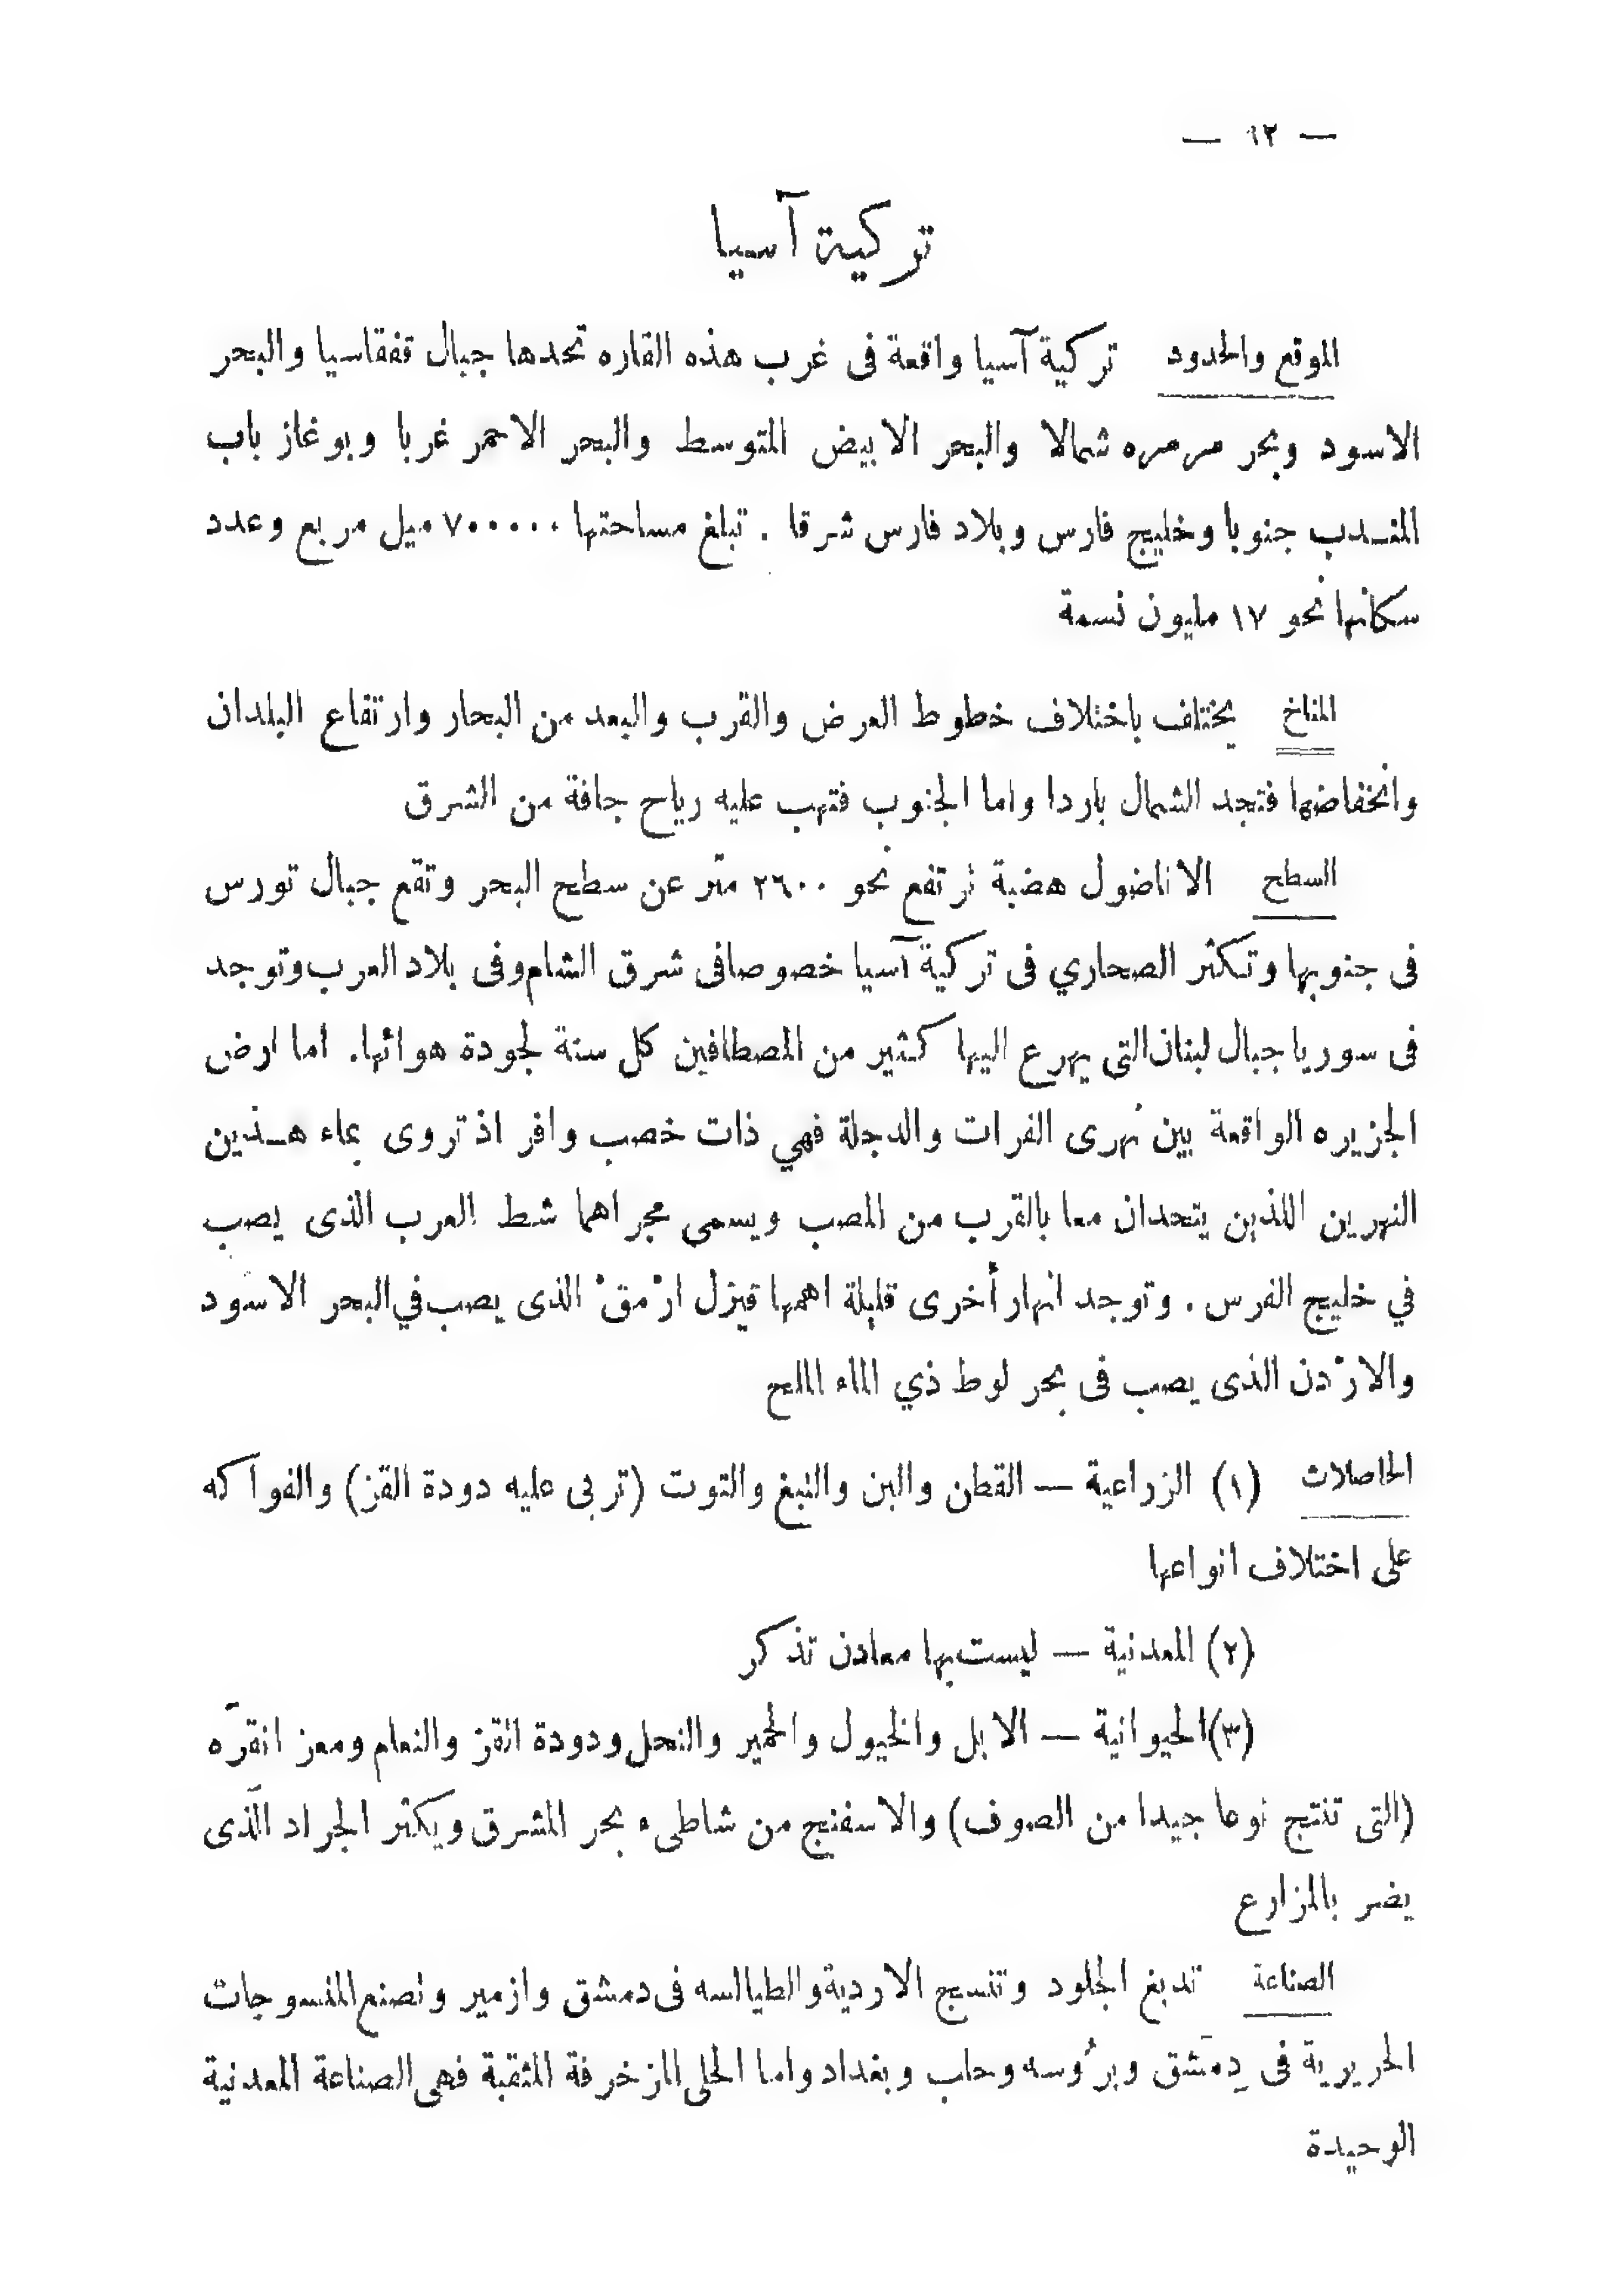 — ١٢ —
تركية آسيا
الموقع والحدود تركية آسيا واقعة فى غرب هذه القاره تحدها جبال قفقاسيا والبحر
الاسود وبحر مرمره شمالا والبحر الابيض المتوسط والبحر الاحمر غربا وبوغاز باب
المندب جنوبا وخليج فارس وبلاد فارس شرقا . تبلغ مساحتها ٧٠٠٠٠٠ ميل مربع وعدد
سكانها نحو ١٧ مليون نسمة
المناخ يختلف باختلاف خطوط العرض والقرب والبعد من البحار وارتفاع البلدان
وانخفاضها فتجد الشمال باردا واما الجنوب فتهب عليه رياح جافة من الشرق
السطح الاناضول هضبة ترتفع نحو ٢٦٠٠ متر عن سطح البحر وتقع جبال تورس
فى جنوبها وتكثر الصحاري فى تركية آسيا خصوصا فى شرق الشام وفى بلاد العرب وتوجد
فى سوريا جبال لبنان التى يهرع اليها كثير من المصطافين كل سنة لجودة هوائها. اما ارض
الجزيره الواقعة بين نهرى الفرات والدجلة فهي ذات خصب وافر اذ تروى بماء هذين
النهرين اللذين يتحدان معا بالقرب من المصب ويسمى مجراهما شط العرب الذى يصب
في خليج الفرس . وتوجد انهار أخرى قليلة اهمها قيزل ارْمقْ الذى يصب في البحر الاسود
والارْدن الذى يصب فى بحر لوط ذي الماء الملح
الحاصلات (١) الزراعية — القطن والبن والتبغ والتوت (تربى عليه دودة القز) والفواكه
على اختلاف انواعها
(٢) المعدنية — ليست بها معادن تذكر
(٣) الحيوانية — الابل والخيول والحمير والنحل ودودة القز والنعام ومعز انقرَه
(التى تنتج نوعا جيدا من الصوف) والاسفنج من شاطىء بحر المشرق ويكثر الجراد الَّذى
يضر بالمزارع
الصناعة تدبغ الجلود وتنسج الاردية والطيالسه فى دمشق وازمير وتصنع المنسوجات
الحريرية فى دِمَشق وبرُوسه وحلب وبغداد واما الحلى المزخرفة المثقبة فهى الصناعة المعدنية
الوحيدة